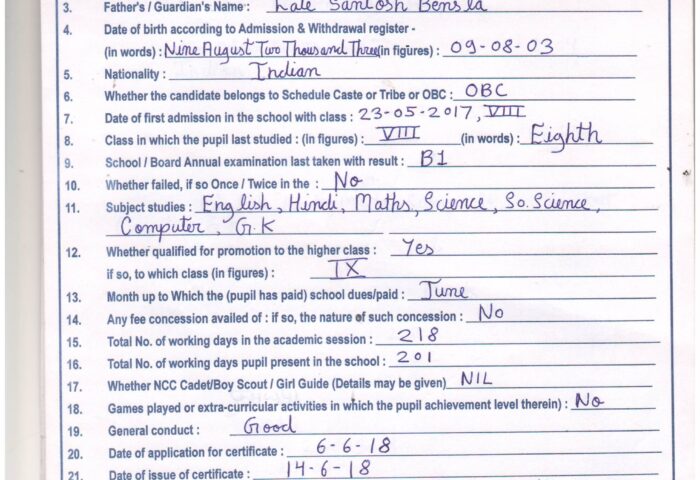 3. Father's / Guardian's Name : Late Santosh Bensla
4. Date of birth according to Admission & Withdrawal register -
(in words) : Nine August Two Thousand Three (in figures) : 09-08-03
5. Nationality : Indian
6. Whether the candidate belongs to Schedule Caste or Tribe or OBC : OBC
7. Date of first admission in the school with class : 23-05-2017, VIII
8. Class in which the pupil last studied : (in figures) : VIII (in words) : Eighth
9. School / Board Annual examination last taken with result : B1
10. Whether failed, if so Once / Twice in the : No
11. Subject studies : English, Hindi, Maths, Science, So. Science,
Computer, G.K
12. Whether qualified for promotion to the higher class : Yes
if so, to which class (in figures) : IX
13. Month up to Which the (pupil has paid) school dues/paid : June
14. Any fee concession availed of : if so, the nature of such concession : No
15. Total No. of working days in the academic session : 218
16. Total No. of working days pupil present in the school : 201
17. Whether NCC Cadet/Boy Scout / Girl Guide (Details may be given) NIL
18. Games played or extra-curricular activities in which the pupil achievement level therein) : No
19. General conduct : Good
20. Date of application for certificate : 6-6-18
21. Date of issue of certificate : 14-6-18